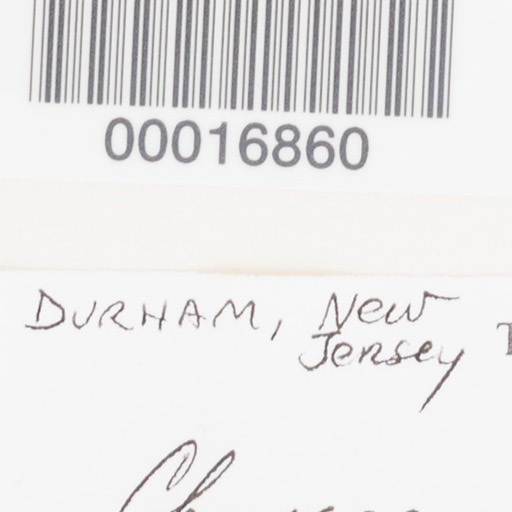 00016860
DURHAM, New
Jersey